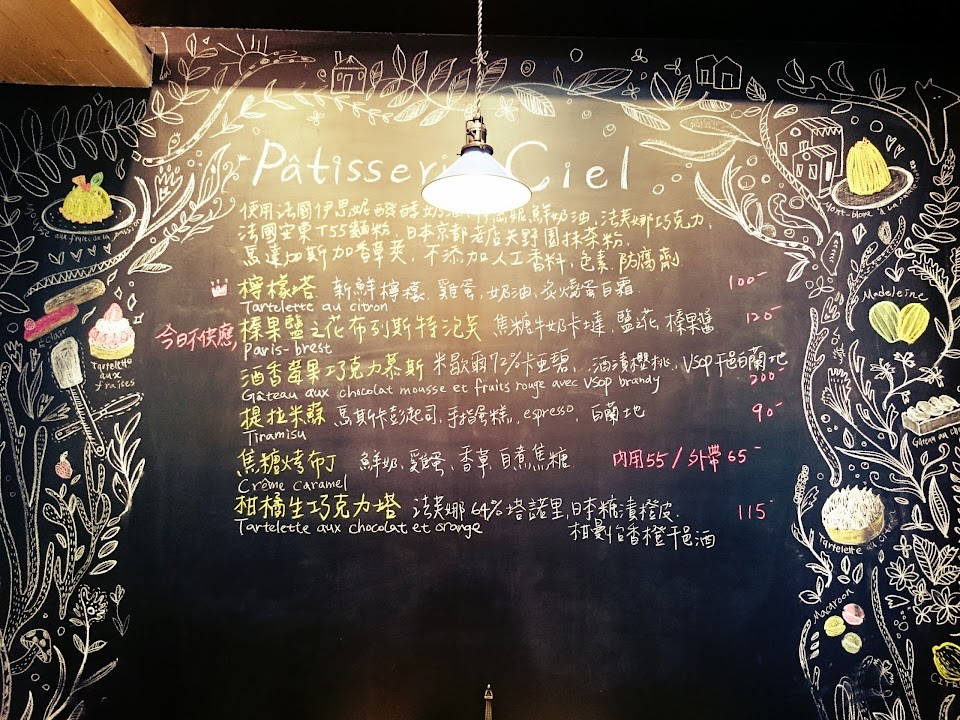 Pâtisserie Ciel
使用法國伊思妮醱酵奶油 鮮奶油、法芙娜巧克力、
法國空東T55麵粉、日本京都老店矢野園抹茶粉、
馬達加斯加香草莢、不添加人工香料、色素、防腐劑
檸檬塔 新鮮檸檬、雞蛋、奶油、炙燒蛋白霜 100-
Tartelette au citron
今日不供應, 榛果鹽之花布列斯特泡芙 焦糖牛奶卡士達、鹽之花、榛果醬 120-
Paris-brest
酒香莓果巧克力慕斯 米歇爾72%卡亞碧、酒漬櫻桃、VSOP干邑白蘭地
Gâteau aux chocolat mousse et fruits rouge avec VSOP brandy 200-
提拉米蘇 馬斯卡彭起司、手指蛋糕、espresso、白蘭地 90-
Tiramisu
焦糖烤布丁 鮮奶、雞蛋、香草、自煮焦糖 內用55/外帶65-
Crème caramel
柑橘生巧克力塔 法芙娜64%塔諾里、日本糖漬橙皮、 115-
Tartelette aux chocolat et orange 柑曼怡香橙干邑酒
eclair
Tartelette
aux
fraises
Mont-blanc
Madeleine
Gâteau au
Tartelette au
Macaroon